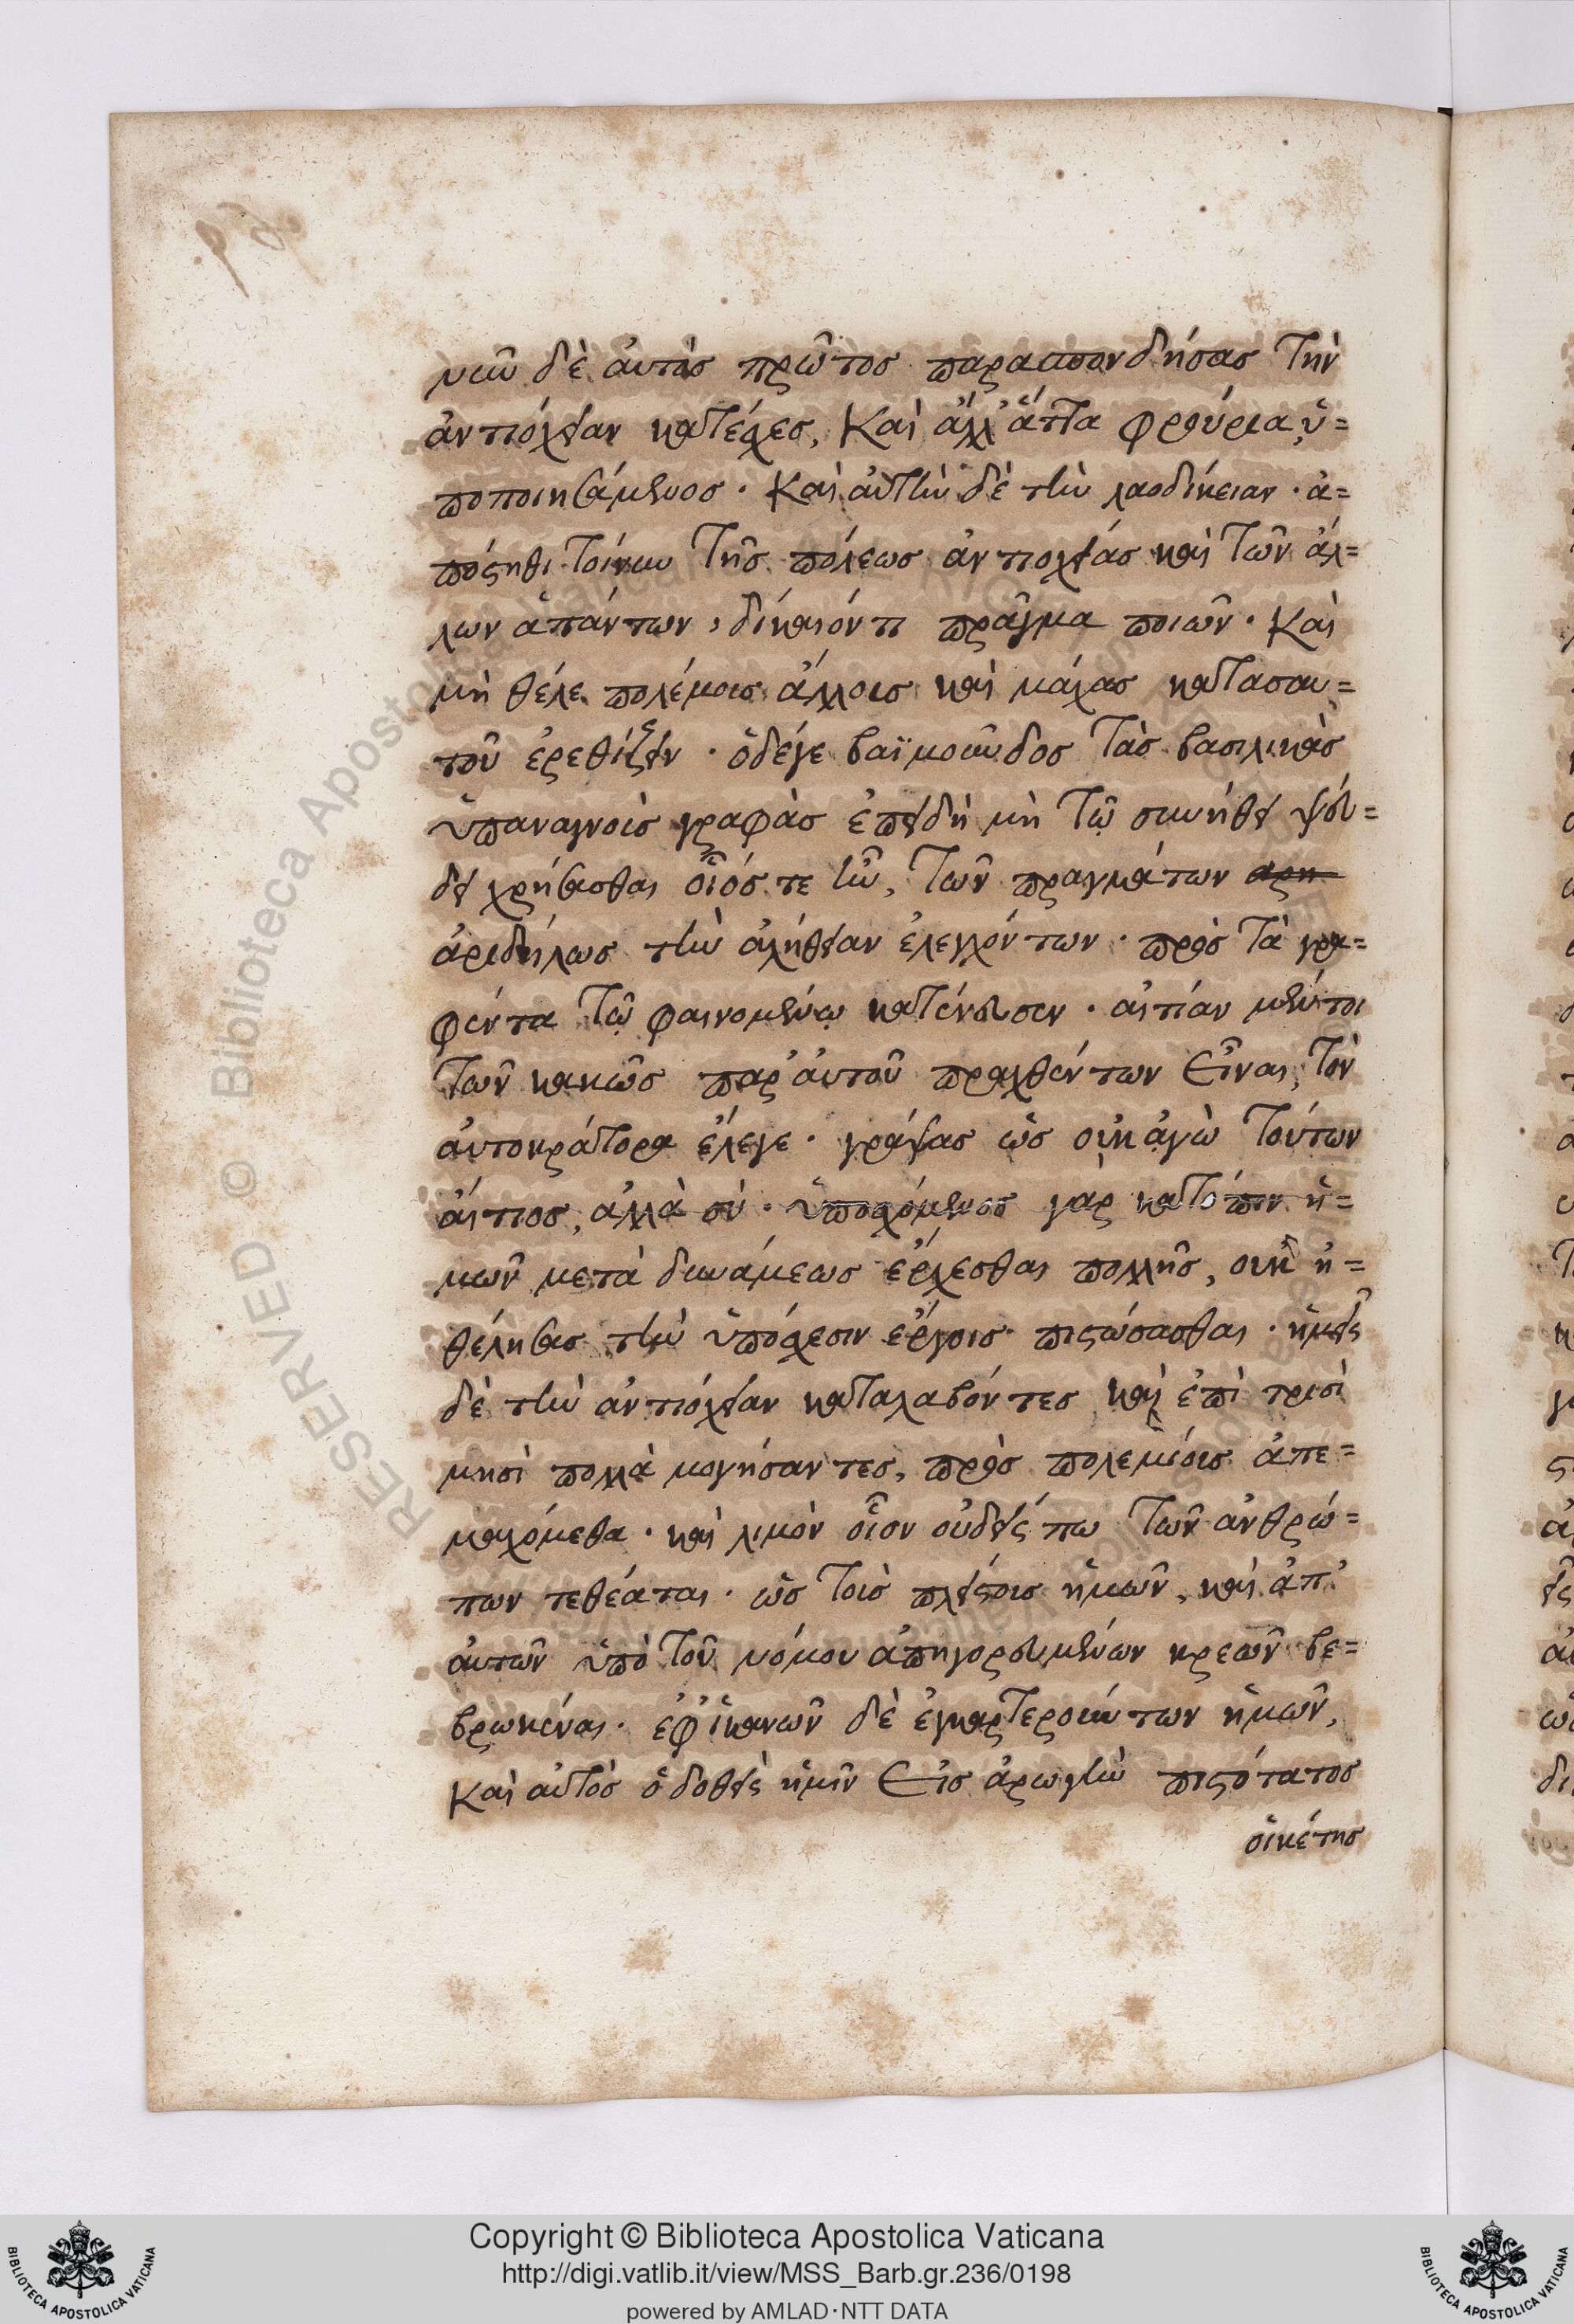 νυῦ δὲ ἀυτὸσ πρῶτοσ παρασπονδήσασ τὴν
ἀντιόχειαν κατέχεισ, Καὶ ἀλλ' ἅττα φρούρια, ὑ=
ποποιησάμενοσ · Καὶ ἀυτὴν δὲ τὴν λαοδίκειαν · ἀ=
πόστηθι τοίνυν τῆσ πόλεωσ ἀντιοχείασ καὶ τῶν ἀλ=
λων ἁπάντων, δίκαιόν τι πρᾶγμα ποιῶν · Καὶ
μὴ θέλε πολέμουσ ἄλλουσ καὶ μάχασ κατασαυ=
τοῦ ἐρεθίζειν · ὁδέγε βαϊμοῦνδοσ τὰσ βασιλικὰσ
ὑπαναγνοὺσ γραφὰσ ἐπειδὴ μὴ τῷ συνήθει ψεύ=
δει χρήσασθαι οἷόσ τε ἦν, τῶν πραγμάτων αρη
ἀριδήλωσ τὴν ἀλήθειαν ἐλεγχόντων · πρὸσ τὰ γρα=
φέντα τῷ φαινομένῳ κατένευσεν · αἰτίαν μέντοι
τῶν κακῶσ παρ' ἀυτοῦ πραχθέντων εἶναι, τὸν
ἀυτοκράτορα ἔλεγε · γράψασ ὡσ οὐκ ἀγὼ τούτων
ἀίτιοσ, ἀλλὰ σύ · ὑποσχόμενοσ γὰρ κατόπιν ἡ=
μῶν μετὰ δυνάμεωσ ἔρχεσθαι πολλῆσ, οὐκ ἠ=
θέλησασ τὴν ὑπόσχεσιν ἔργοισ πιστώσασθαι · ἡμεῖς
δὲ τὴν ἀντιόχειαν καταλαβόντεσ καὶ ἐπὶ τρισὶ
μησὶ πολλὰ μογήσαντεσ, πρὸσ πολεμίουσ ἀπε=
μαχόμεθα · καὶ λιμὸν οἷον οὐδείς πω τῶν ἀνθρώ=
πων τεθέαται · ὡσ τοὺσ πλείστουσ ἡμῶν, καὶ ἀπ'
ἀυτῶν ὑπὸ τοῦ νόμου ἀπηγορευμένων κρεῶν βε=
βρωκέναι · ἐφ' ἱκανῶν δὲ ἐγκαρτερούντων ἡμῶν,
Καὶ ἀυτὸσ ὁ δοθεὶς ἡμῖν εἰσ ἀρωγὴν πιστότατοσ
οἰκέτησ
RESERVED © Biblioteca Apostolica Vaticana
BIBLIOTECA APOSTOLICA VATICANA
Copyright © Biblioteca Apostolica Vaticana
http://digi.vatlib.it/view/MSS_Barb.gr.236/0198
powered by AMLAD·NTT DATA
BIBLIOTECA APOSTOLICA VATICANA